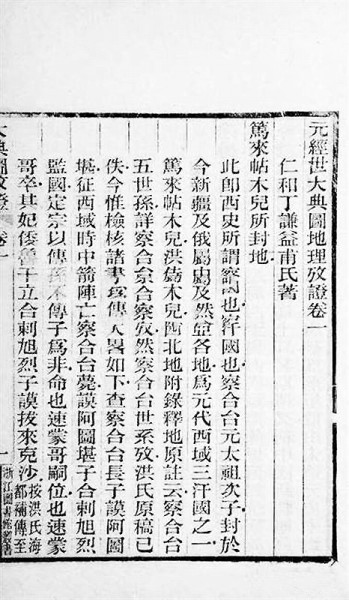 元經世大典圖地理攷證卷一
仁和丁謙益甫氏著
篤來帖木兒所封地
此即西史所謂也國也察合台元太祖次子封於
今新疆及俄屬及然各地爲元代西域三汗國之一
篤來帖木兒洪木兒西北地附錄釋地原註云察合台
五世孫詳察合台察合然察合台世系攷洪氏原稿已
佚今惟檢核諸書爲傳人畧如下查察合台長子謨阿圖
堪征西域時中箭陣亡察合台薨謨阿圖堪子合剌旭烈
監國定宗以傳孫不傳子爲非命也速蒙哥嗣位也速蒙
哥卒其妃倭魯干立合剌旭烈子謨拔來克沙按洪氏海
都補傳至
大典圖攷證 卷一
一
浙江圖書館叢書